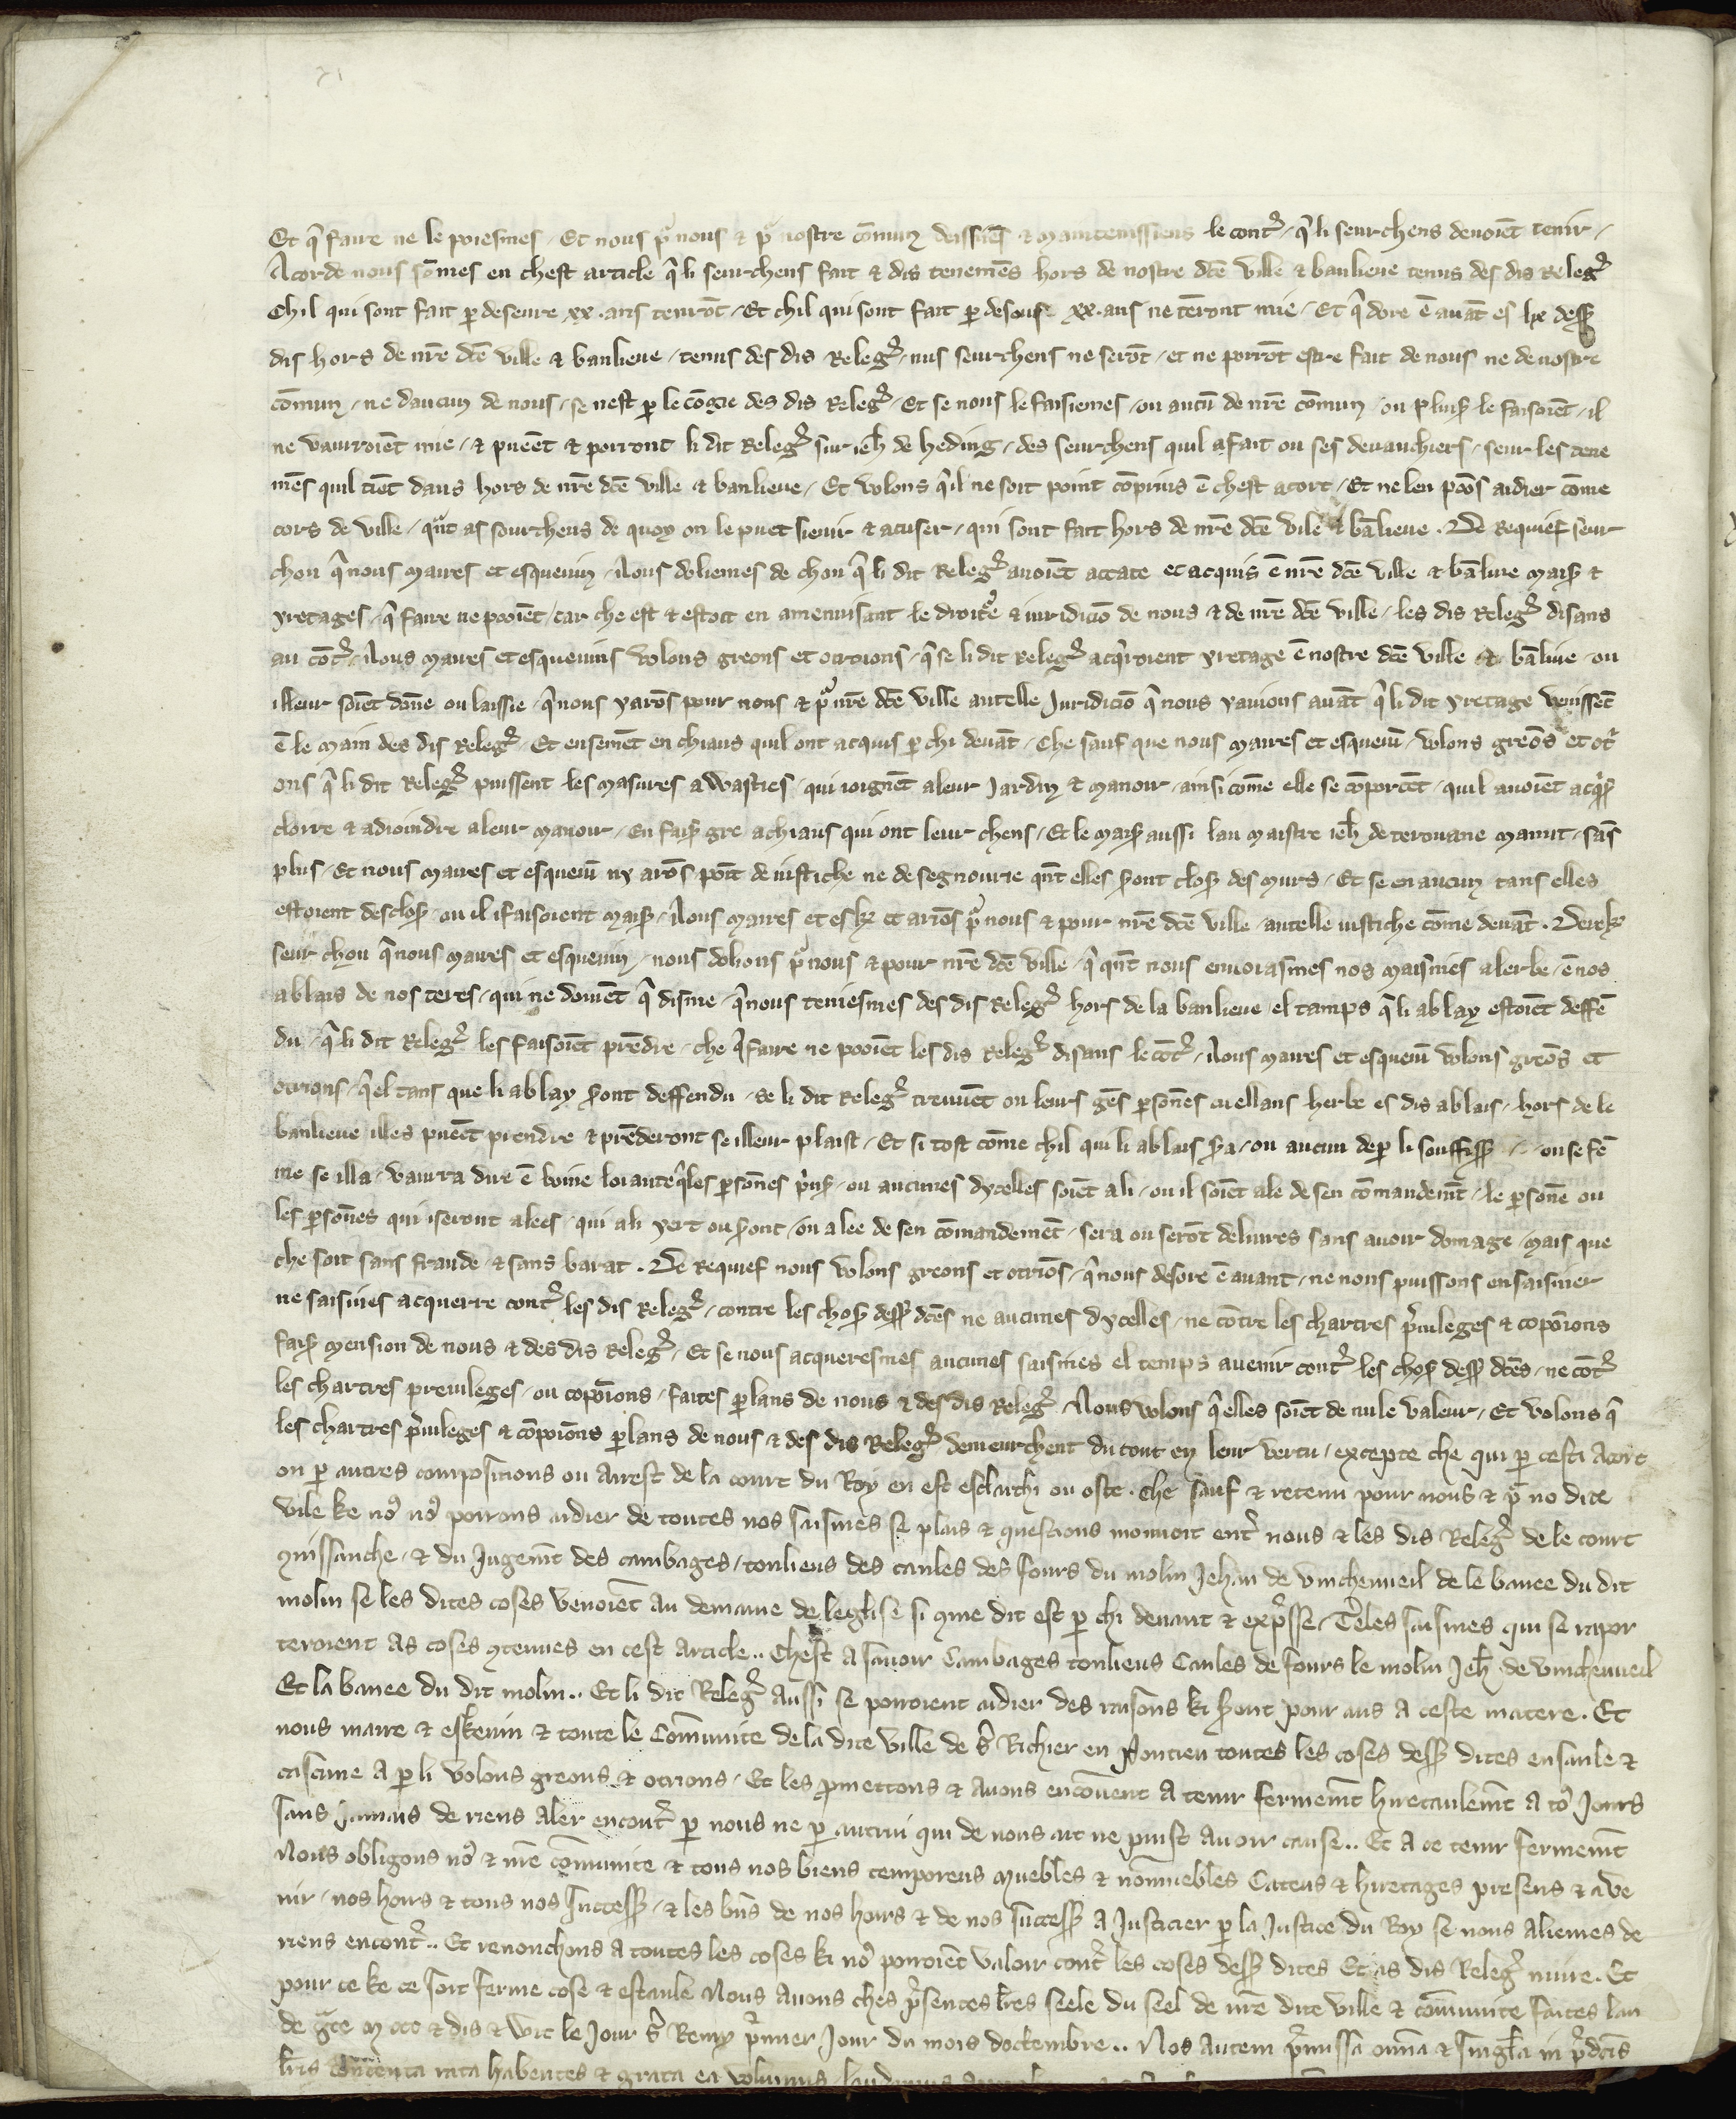 Et q̃ faire ne le poiesmes / Et nous pͬ nous & pͬ nostre cõmun deissiẽs & maintenissiens le contͬ / q̃ li seurchens deuoiẽt tenir /
Acorde nous sõmes en chest article q̃ li seurchens fait & dis tenemẽs hors de nostre dc̃e ville & banlieue tenus des dis Relegͬ
Chil qui sont fait p deseure .xx. ans tenrõt / Et chil qui sont fait p desous .xx. ans ne tẽront mie / Et q̃ dore ẽ auãt es lix dess9
dis hors de nr̃e dc̃e ville & banlieue / tenus des dis Relegͬ / nus seurchens ne serõt / et ne porrõt estre fait de nous ne de nostre
cõmun / ne daucun de nous / se nest p le cõgie des dis Relegͬ / Et se nous le faisiemes / ou aucũ de nr̃e cõmun / ou pluis9 le faisoiẽt / il
ne vaurroiẽt mie / & pueẽt & porront li dit Relegͬ siur ieh̃ de heding / des seurchens quil a fait ou ses deuanchiers / seur les tene
mẽs quil tiẽt daus hors de nr̃e dc̃e ville & banlieue / Et volons q̃ il ne soit point cõprius ẽ chest acort / Et ne len pooñs aidier cõme
cors de ville / qñt as sourchens de quoy on le puet sieuir & acuser / qui sont fait hors de nr̃e dc̃e vile & bãlieue . De Requief seur
chou q̃ nous maires et esqueuin / Nous doliemes de chou q̃ li dit Relegͬ auoiẽt accate et acquis ẽ nr̃e dc̃e ville & bãliue mais9 &
yretages / q̃ faire ne pooiẽt / car che est & estoit en amenuisant le droitͬe & iuridiciõ de nous & de nr̃e dc̃e ville / les dis Relegͬ disans
au cõtͬ / Nous maires et esqueuins volons greons et otroions / q̃ se li dit Relegͬ acq̃roient yretage ẽ nostre dc̃e ville & bãliue / ou
il leur soiẽt dõne ou laissie / q̃ nous y arõs pour nous & pͬ nr̃e dc̃e ville autelle Juridiciõ q̃ nous y auions auãt q̃ li dit yretage venissẽt
ẽ le main des dis Relegͬ / Et ensemẽt en chiaus quil ont acquis p chi deuãt / Che sauf que nous maires et esqueuiñ / volons greõs et otͥ
ons q̃ li dit Relegͬ puissent les masures awasties / qui ioignẽt a leur Jardin & manoir / ainsi cõme elle se cõportẽt / quil auoiẽt acq̃s9
cloire & adioindre a leur manoir / En fais9 gre a chiaus qui ont leur chens / Et le mais9 aussi lau maistre ieh̃ de terouane manut / sãs
plus / Et nous maires et esqueuiñ ny arõs põit de iustiche ne de segnourie qñt elles s̃ont clos9 des murs / Et se en aucun tans elles
estoient desclos9 / ou il i faisoient mais9 / Nous maires et esk9 et ariõs pͬ nous & pour nr̃e dc̃e ville / autelle iustiche cõme deuãt . Derek9
seur chou q̃ nous maires et esqueuin / nous dolions pͬ nous & pour nr̃e dc̃e ville / q̃ qñt nous enuoiasmes nos maisnies a lerbe / ẽ nos
ablais de nos teres / qui ne doiuẽt q̃ disme / q̃ nous teniesmes des dis Relegͬ hors de la banlieue el tamps q̃ li ablay estoiẽt deffẽ
du / q̃ li dit Relegͬ les faisoiẽt prẽdre / che q̃ faire ne pooiẽt les dis Relegͬ disans le cõtͬ / Nous maires et esqueuiñ volons greõs et
otrions / q̃ el tans que li ablay s̃ont deffendu / se li dit Relegͬ treuuẽt ou leurs gẽs psõnes cuellans herbe es dis ablais / hors de le
banlieue il les pueẽt prendre & prẽderont se il leur plaist / Et si tost cõme chil qui li ablais s̃a / ou aucun de p li souffiss9 / ou se fẽ
me se il la / vaurra dire ẽ boine loiaute q̃ les psõnes p̃is9 / ou aucunes dycelles soiẽt a li / ou il soiẽt ale de sen cõmandemt̃ / le psõne ou
les psõnes qui i seront alees / qui a li yert ou s̃ont / ou alee de sen cõmandemẽt / sera ou serõt deliures sans auoir domage / mais que
che soit sans fraude & sans barat . De Requief nous volons greons et otriõs / q̃ nous desore ẽ auant / ne nous puissons ensaisiner
ne saisines acquerre contͬ les dis Relegͬ / contre les chos9 dess9 dc̃es ne aucunes dycelles / ne cõtre les chartres p̃iuileges & copoĩons
fais9 mension de nous & des dis Relegͬ / Et se nous acqueresmes aucunes saisines el temps auenir contͬ les chos9 dess9 dc̃es / ne cõtͬ
les chartres preuileges / ou copoĩons / faites plans de nous & des dis Relegͬ / Nous volons q̃ elles soiẽt de nule valeur / Et volons q̃
les chartres p̃iuileges & cõpoĩons plans de nous & des dis Relegͬ demeurchent du tout en leur vertu / excepte che qui p cesti acort
ou p autres compositions ou arrest de la court du Roy en est esclarchi ou oste . Che sauf & retenu pour nous & pͬ no dite
vile ke no9 no9 porrons aidier de toutes nos saisines se plais & questions mouuoit entͬ nous & les dis Relegͬ de le court
9nissanche / & du Jugemt̃ des cambages / tonlieus des caules des fours du molin Jehan de vinchenueil de le banee du dit
molin se les dites coses venoiẽt au demaine de leglise si 9me dit est p chi deuant & exp̃sse / Teles saisines qui se rapor
teroient as coses 9tenues en cest article .. Chest a sauoir Cambages tonlieus Caules de fours le molin Jeh̃ de vinchenueil
Et la banee du dit molin .. Et li dit Relegͬ aussi se porroient aidier des raisons ki s̃ont pour aus a ceste matere . Et
nous maire & eskeuin & toute le Communite de la dite ville de s̃ Richier en Pontieu toutes les coses dess9 dites ensanle &
cascune a p li volons greons & otrions / Et les pmettons & auons encõuent a tenir fermemt̃ hiretaulemt̃ a to9 Jours
sans Jamais de riens aler encontͬ p nous ne p autrui qui de nous ait ne puist auoir cause .. Et a ce tenir fermemt̃
Nous obligons no9 & nr̃e cõmunite & tous nos biens temporeus muebles & nõmuebles Cateus & hiretages presens & aue
nir / nos hoirs & tous nos success9 / & les bñs de nos hoirs & de nos success9 a Justicier p la Justice du Roy se nous aliemes de
riens encontͬ .. Et renonchons a toutes les coses ki no9 porroiẽt valoir contͬ les coses dess9 dites Et as dis Relegͬ nuire . Et
pour ce ke ce soit ferme cose & estaule Nous auons ches p̃sentes lr̃es seele du seel de nr̃e dite ville & cõmunite faites lan
de gͣce m ccc & dis & wit le Jour s̃ Remy p̃mier Jour du mois doctembre .. Nos autem p̃missa om̃ia & singl̃a in p̃dc̃is
lr̃is contenta rata habentes & grata ea volumus laudamus